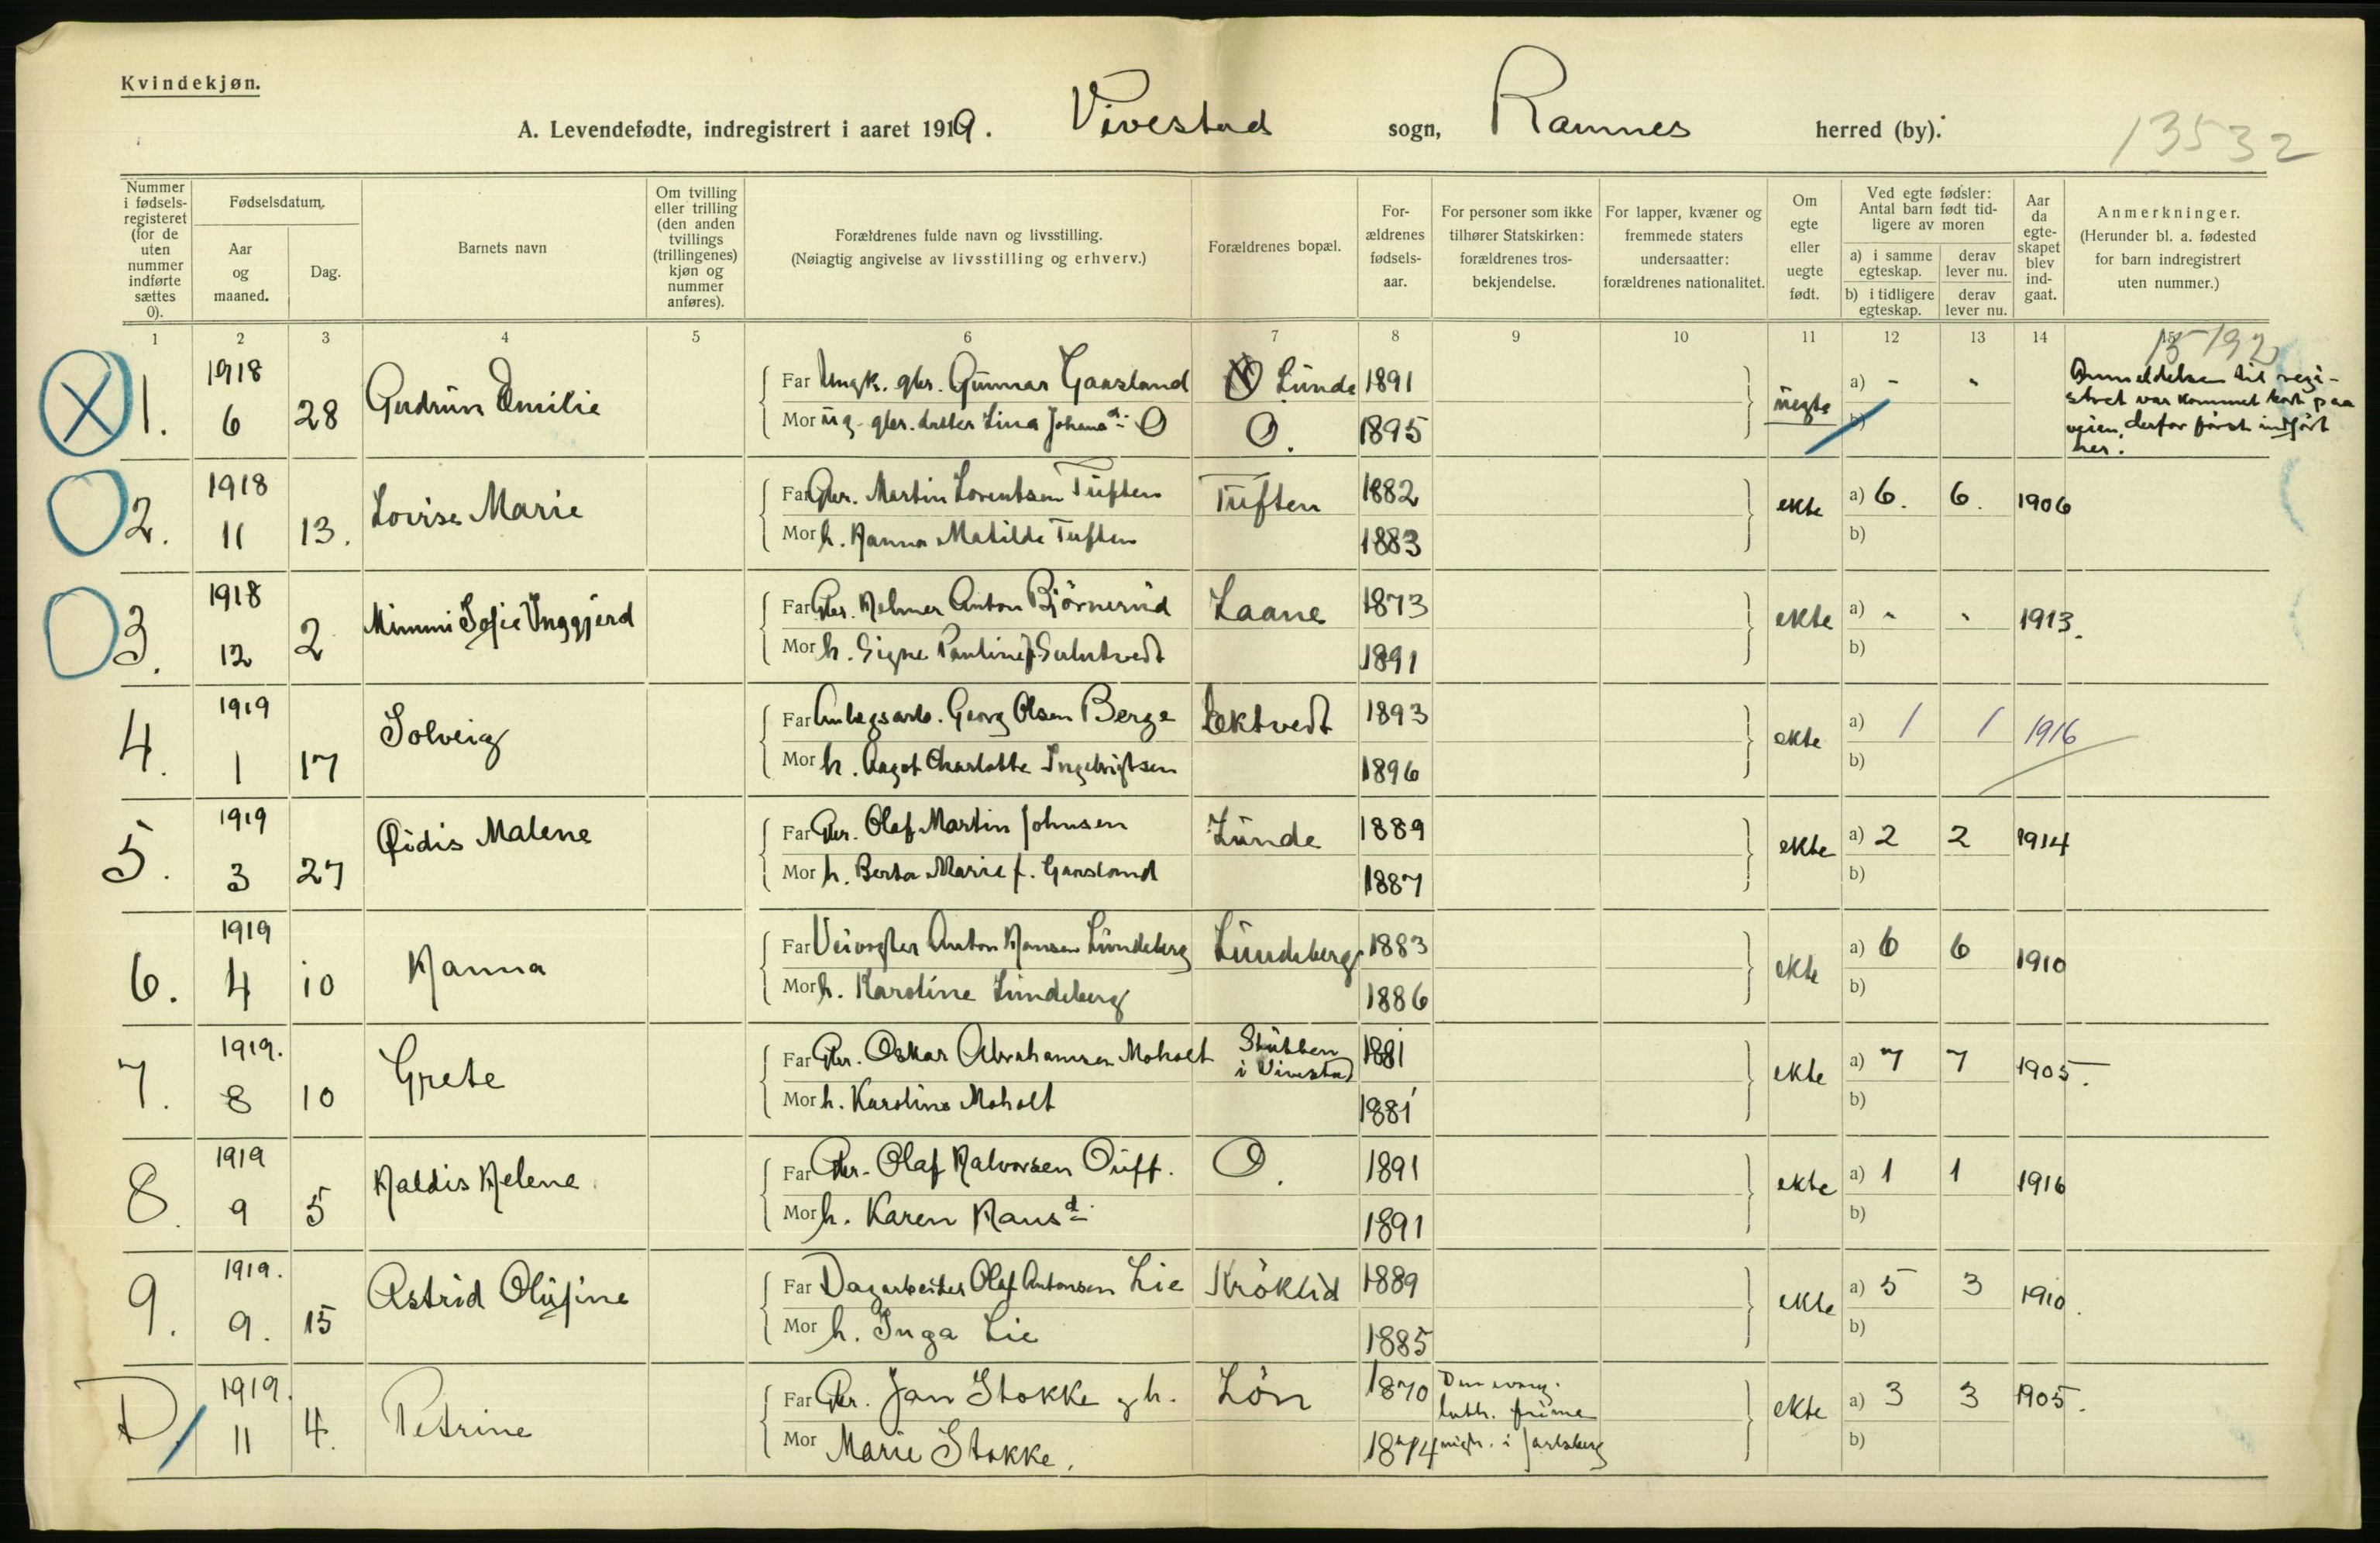 Kvindekjøn.
A. Levendefødte, indregistrert i aaret 1919. Vivestad sogn, Ramnes herred (by).
13532
Nummer i fødselsregisteret (for de uten nummer indførte sættes 0).
Fødselsdatum.
Aar og maaned.
Dag.
Barnets navn
Om tvilling eller trilling (den anden tvillings (trillingenes) kjøn og nummer anføres).
Forældrenes fulde navn og livsstilling.
(Nøiagtig angivelse av livsstilling og erhverv.)
Forældrenes bopæl.
For-ældrenes fødsels-aar.
For personer som ikke tilhører Statskirken: forældrenes tros-bekjendelse.
For lapper, kvæner og fremmede staters undersaatter: forældrenes nationalitet.
Om egte eller uegte født.
Ved egte fødsler: Antal barn født tid-ligere av moren
a) i samme egteskap. derav lever nu.
b) i tidligere egteskap. derav lever nu.
Aar da egte-skapet blev ind-gaat.
Anmerkninger.
(Herunder bl. a. fødested for barn indregistrert uten nummer.)
1 2 3 4 5 6 7 8 9 10 11 12 13 14 15
192
1. 1918 6 28 Gudrün Emilie
Far Ungk. gbr. Günnar Gaasland Lünde 1891
Mor üg. gbr. datter Lina Johans d. O O. 1895
üegte a) - - b)
Anmeldelsen til regi-
stret var kommet bort paa
veien, derfor först indfört
her.
2. 1918 11 13. Lovise Marie
Far Gbr. Martin Lorentsen Tüften Tüften 1882
Mor h. Hanna Matilde Tuften 1883
ekte a) 6. 6. 1906 b)
3. 1918 12 2 Mimmi Sofie Inggjerd
Far Gbr. Helmer Anton Björnerüd Laane 1873
Mor h. Signe Pauline f. 1891
ekte a) - - 1913. b)
4. 1919 1 17 Solveig
Far Anlegsarb. Georg Olsen Berge Ektvedt 1893
Mor h. Aagot Charlotte Ingebrigtsen 1896
ekte a) 1 1 1916 b)
5. 1919 3 27 Oidis Malene
Far Gbr. Olaf Martin Johnsen Lünde 1889
Mor h. Berta Marie f. Gaasland 1887
ekte a) 2 2 1914 b)
6. 1919 4 10 Hanna
Far Veivogter Anton Hansen Lündeberg Lündeberg 1883
Mor h. Karoline Lundeberg 1886
ekte a) 6 6 1910 b)
7. 1919. 8 10 Grete
Far Gbr. Oskar Abrahamsen Moholt Stübben i Vivestad 1881
Mor h. Karoline Moholt 1881
ekte a) 7 7 1905. b)
8. 1919 9 5 Haldis Helene
Far Gbr. Olaf Halvorsen O. 1891
Mor h. Karen Hans d. 1891
ekte a) 1 1 1916 b)
9. 1919. 9. 15 Astrid Olüfine
Far Dagarbeider Olaf Antonsen Lie Kröklid 1889
Mor h. Inga Lie 1885
ekte a) 5 3 1910. b)
D. 1919. 11 4. Petrine
Far Gbr. Jan Stokke og h. Lön 1870 Den evang.
luth. frime
Mor Marie Stokke. 1874 nigh. i Jarlsberg
ekte a) 3 3 1905. b)